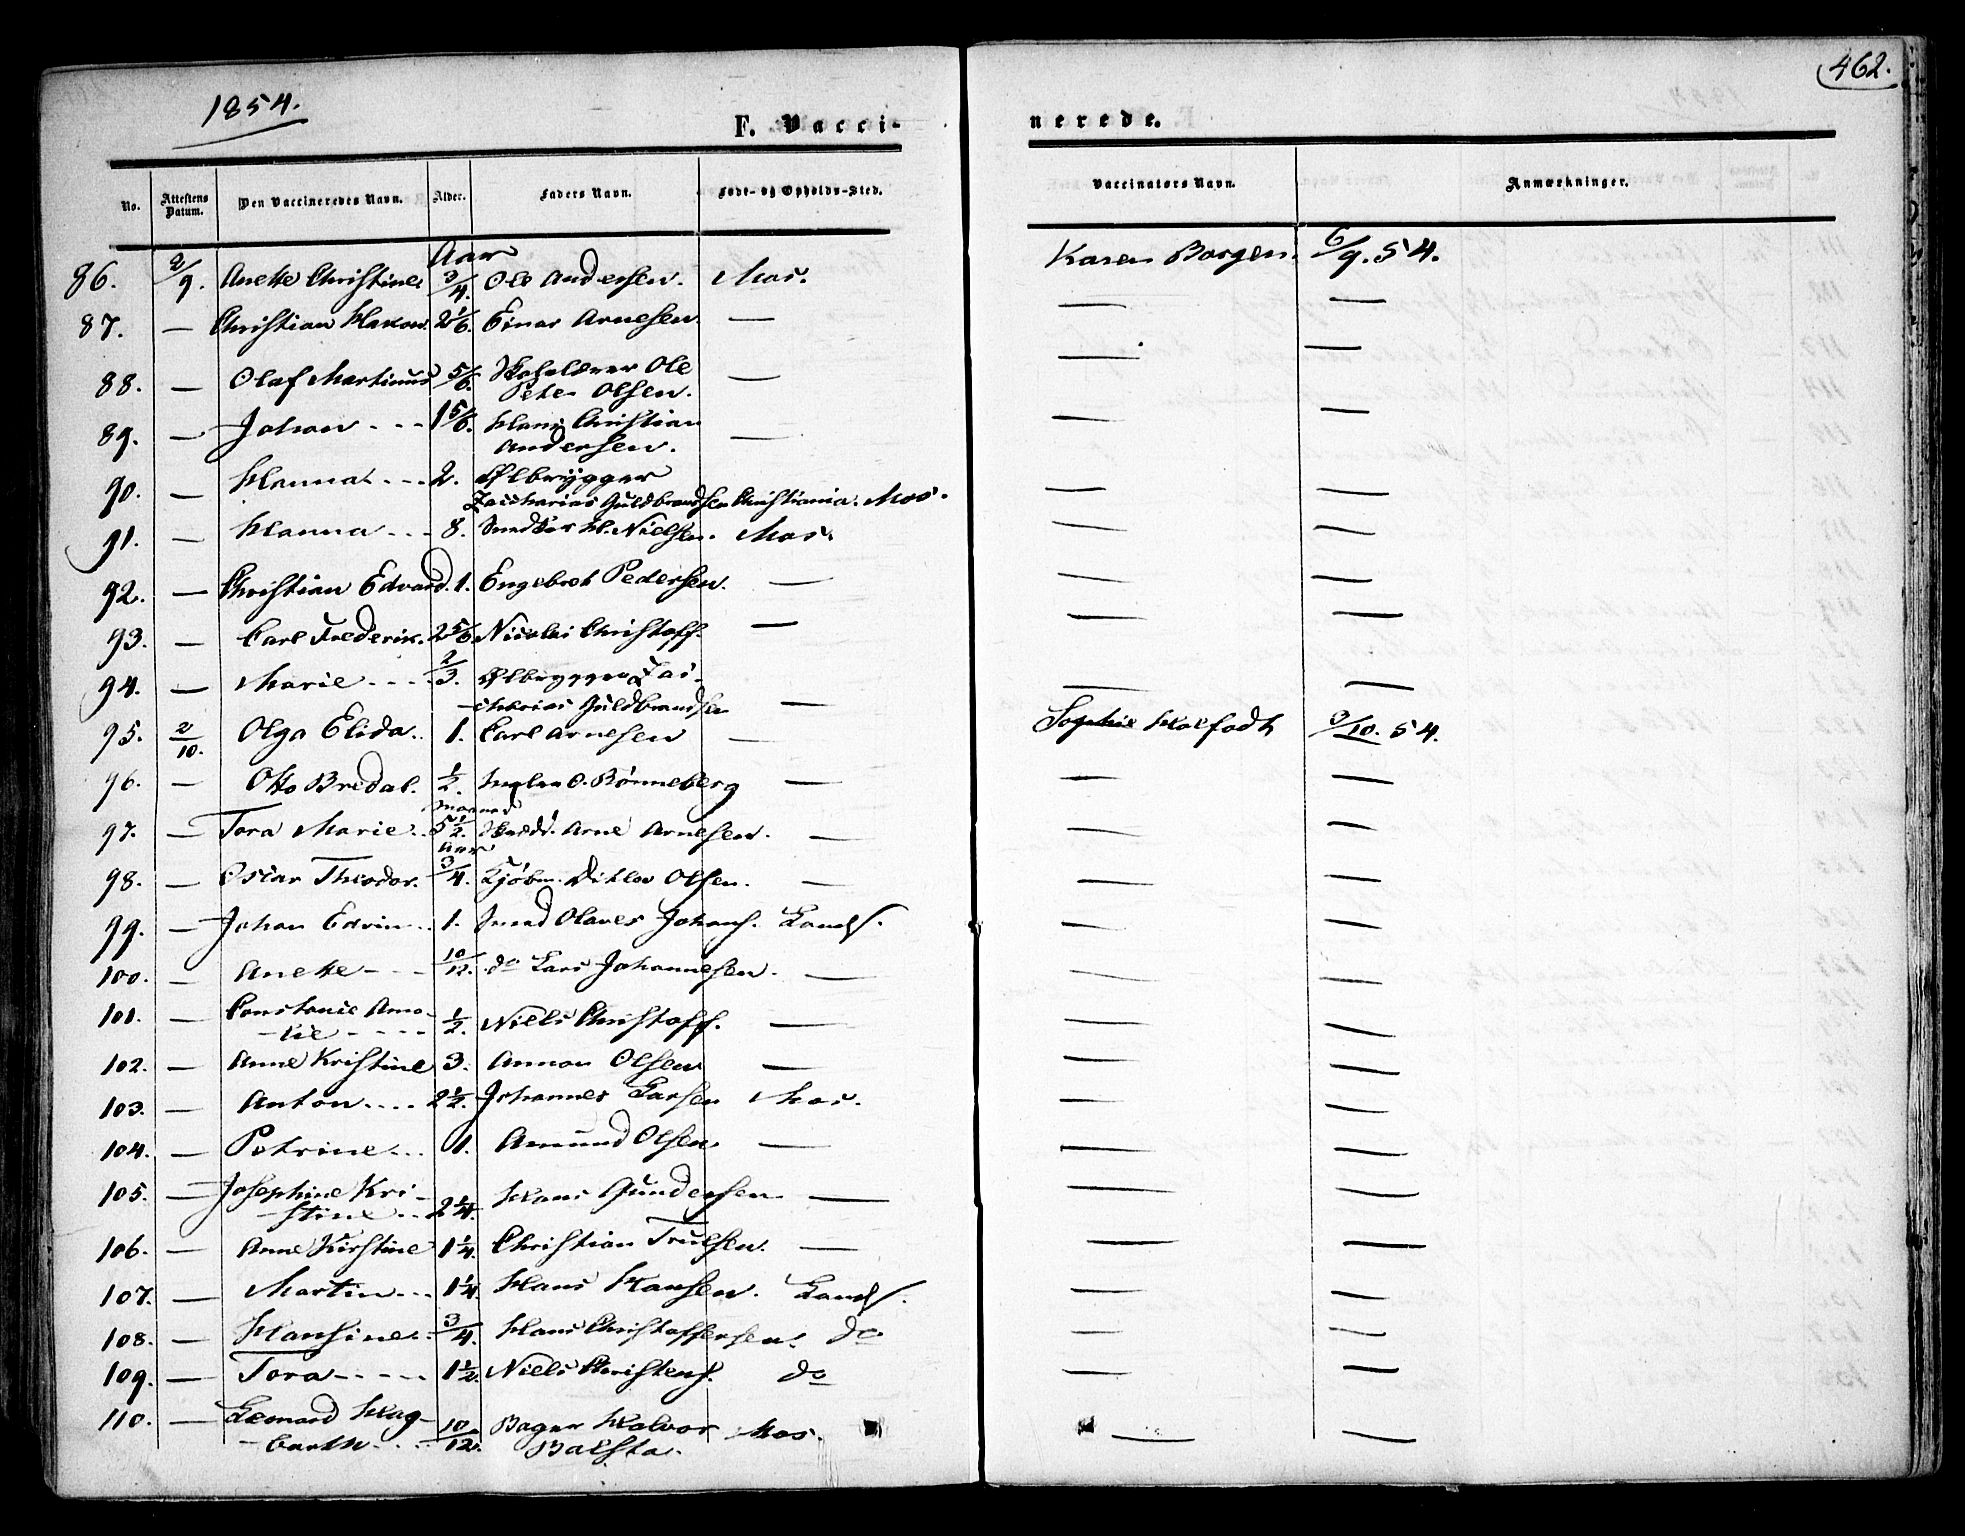 1854.
462.
F. Vacci-
nerede.
No. Attestens Datum. Den Vaccineredes Navn. Alder. Faders Navn. Føde- og Opholds-Sted. Vaccinators Navn. Anmærkninger.
Aar
86. 2/9. Anette Christine 3/4. Ole Andersen. Mos. Karen Borgen. 6/9. 54.
87. — Christian Hakon. 2 1/6. Einar Arnesen. — — —
88. — Olaf Martinus 5/6. Ole — — —
Peter Olsen.
89. — Johan - - - 1 5/6. Hans Christian
Andersen. — — —
90. — Hanna - - - 2. Ølbrygger
Zacharias Guldbrandsen Christiania. Mos. — —
91. — Hanna - - - 8. H. Nielsen. Mos. — —
92. — Christian Edvard. 1. Engebret Pedersen. — — —
93. — Carl Frederik. 2 5/6. Nicolai Christoff. — — —
94. — Marie - - - 2/3. Ølbrygger Za-
charias Guldbrandsen — — —
95. 2/10. Olga Elida.. 1. Carl Arnesen — Sophie Halfadt 3/10. 54.
96. — Otto Bredal. 1/2. O. Rønneberg — — —
Maaned
97. — Tora Marie.. 5 1/2. Arne Arnesen. — — —
Aar
98. — Oscar Theodor. 3/4. Kjøbm. Ditlev Olsen. — — —
99. — Johan Edvin... 1. Olaves Johans. Lands. — —
100. — Anette - - - 10/12. do Lars Johannesen. — — —
101. — Constance Ama-
-lie - - - - 1/2. Niels Christoff. — — —
102. — Anne Kristine 3. Olsen — — —
103. — Anton.... 2 1/2. Johannes Larsen Mos. — —
104. — Petrine... 1. Amund Olsen — — —
105. — Josephine Kri-
-stine... 2 1/4. Hans Gundersen — — —
106. — Anne Kirstine 1 1/4. Christian Trulsen. — — —
107. — Martin... 1 1/4. Hans Hansen. Lands. — —
108. — Hansine.. 3/4. Hans Christoffersen. do — —
109. — Tora - - - - - 1 1/2. Niels Christens. do — —
110. — Leonard Hag-
-barth... 10/12. Bager Halvor Mos. — —
Balsta.